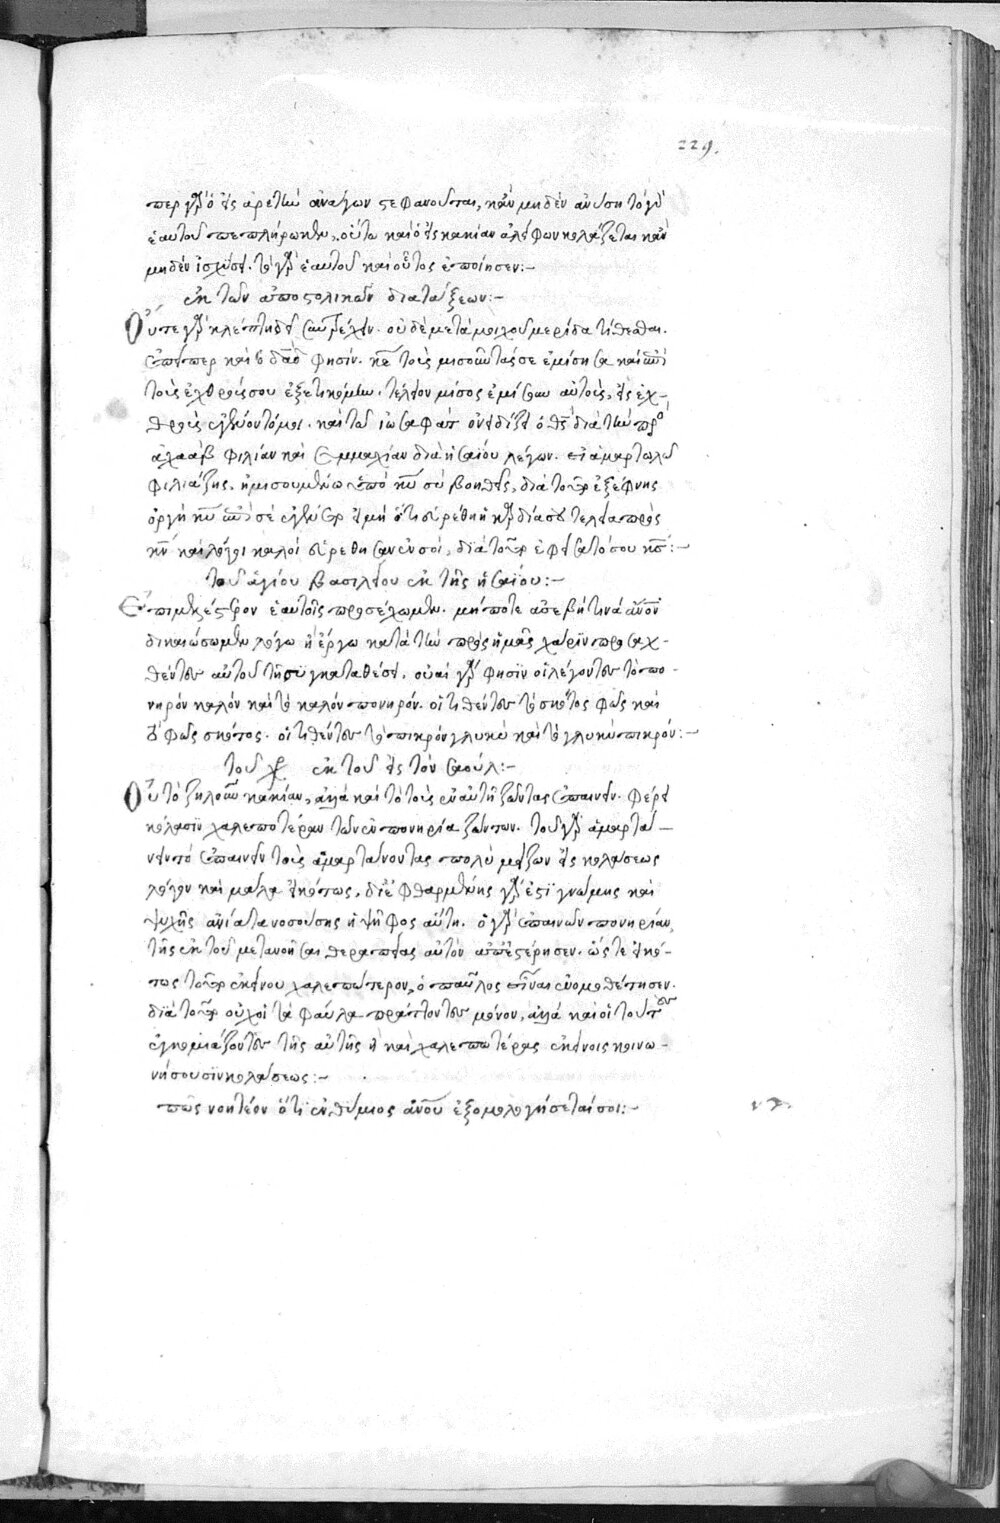 229.
περ γὰρ ὁ εἰς ἀρετὴν ἀνάγων στεφανοῦται, κἂν μηδὲν ἀνύσῃ τὸ γὰρ
ἑαυτοῦ πεπλήρωκεν, οὕτω καὶ ὁ εἰς κακίαν ἀλείφων κολάζεται κἂν
μηδὲν ἰσχύσῃ. τὸ γὰρ ἑαυτοῦ καὶ οὗτος ἐποίησεν:-
ἐκ τῶν ἀποστολικῶν διατάξεων:-
Οὔτε γὰρ κλέπτῃ δεῖ συντρέχειν. οὐδὲ μετὰ μοιχοῦ μερίδα τίθεσθαι.
ἐπείπερ καὶ ὁ δαδ φησίν. κε τοὺς μισοῦντάς σε ἐμίσησα καὶ ἐπὶ
τοὺς ἐχθρούς σου ἐξετηκόμην. τέλειον μίσος ἐμίσουν αὐτούς, εἰς ἐχ-
θροὺς ἐγένοντό μοι. καὶ τῶ ἰωσαφὰτ ὀνειδίζει ὁ θς διὰ τὴν πρὸς
ἀχαὰβ φιλίαν καὶ συμμαχίαν διὰ ἠσαίου λέγων. εἰ ἁμαρτωλῶ
φιλιάζεις, ἢ μισουμένω ὑπὸ κυ σὺ βοηθεῖς, διὰ τοῦτο ἐξέφνης
ὀργὴ κυ ἐπὶ σὲ ἐγένετο εἰ μὴ ὅτι εὑρέθη ἡ καρδία σου τελεία πρὸς
κν καὶ λόγοι καλοὶ εὑρέθησαν ἐν σοί, διὰ τοῦτο ἐφείσατό σου κς:-
τοῦ ἁγίου βασιλείου ἐκ τῆς ἠσαΐου:-
Ἐπιμελέστερον ἑαυτοῖς προσέχωμεν. μήποτε ἀσεβῆ τινὰ ἄνον
δικαιώσωμεν λόγω ἢ ἔργω κατὰ τὴν πρὸς ἡμᾶς χάριν προαχ-
θέντες αὐτοῦ τῇ συγκαταθέσει. οὐαὶ γάρ φησιν οἱ λέγοντες τὸ πο-
νηρὸν καλὸν καὶ τὸ καλὸν πονηρόν. οἱ τιθέντες τὸ σκότος φῶς καὶ
τὸ φῶς σκότος. οἱ τιθέντες τὸ πικρὸν γλυκὺ καὶ τὸ γλυκὺ πικρόν:-
τοῦ χρ ἐκ τοῦ εἰς τὸν σαούλ:-
Οὐ τὸ ζηλοῦν κακίαν, ἀλλὰ καὶ τὸ τοὺς ἐν αὐτῇ ζῶντας ἐπαινεῖν. φέρει
κόλασιν χαλεπωτέραν τῶν ἐν πονηρία ζώντων. τοῦ γὰρ ἁμαρτά-
νειν τὸ ἐπαινεῖν τοὺς ἁμαρτάνοντας πολὺ μεῖζον εἰς κολάσεως
λόγον καὶ μάλα εἰκότως, διεφθαρμένης γάρ ἐστι γνώμης καὶ
ψυχῆς ἀνίατα νοσούσης ἡ ψῆφος αὕτη. ὁ γὰρ ἐπαινῶν πονηρίαν,
τῆς ἐκ τοῦ μετανοῆσαι θεραπείας αὐτὸν ἀπεστέρησεν. ὥστε εἰκό-
τως τοῦτο ἐκείνου χαλεπώτερον, ὁ παῦλος εἶναι ἐνομοθέτησεν.
διὰ τοῦτο οὐχ οἱ τὰ φαῦλα πράττοντες μόνον, ἀλλὰ καὶ οἱ τούτους
ἐγκωμιάζοντες τῆς αὐτῆς ἢ καὶ χαλεπωτέρας ἐκείνοις κοινω-
νήσουσιν κολάσεως:-
πῶς νοητέον ὅτι ἐνθύμιος ἀνου ἐξομολογήσεταί σοι:-